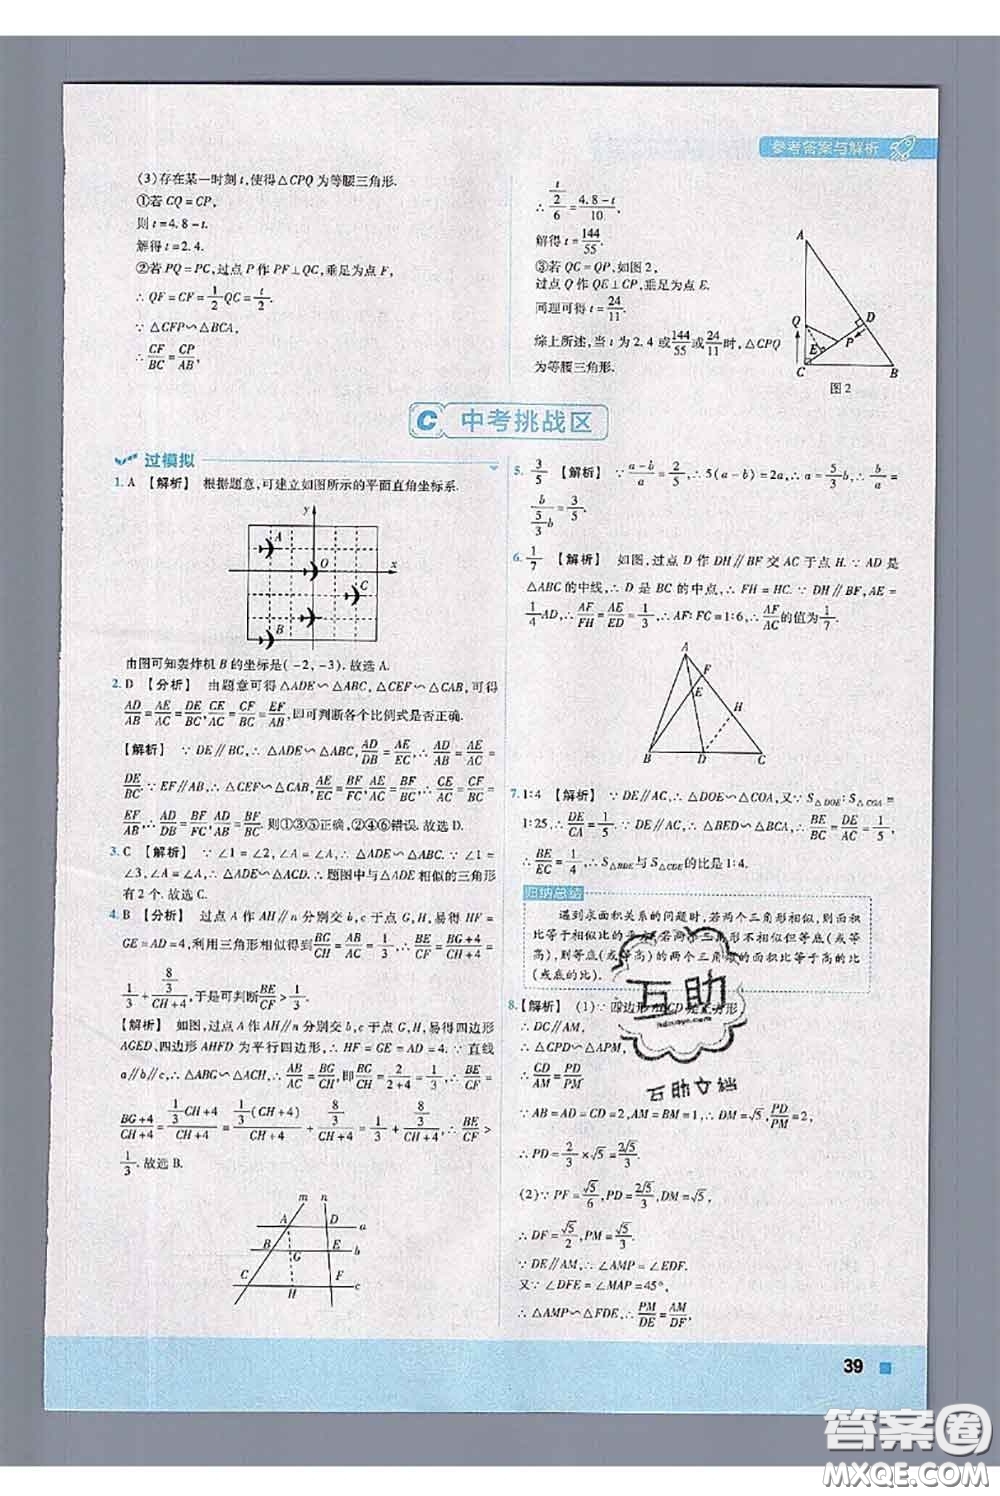 参考答案与解析
(3)存在某一时刻 t,使得△CPQ 为等腰三角形.
①若 CQ = CP,
则 t = 4.8 - t.
解得 t = 2.4.
②若 PQ = PC,过点 P 作 PF⊥QC,垂足为点 F,
∴ QF = CF = 1/2 QC = t/2.
∵ △CFP∽△BCA,
∴ CF/BC = CP/AB,
∴ (t/2)/6 = (4.8 - t)/10,
解得 t = 144/55.
③若 QC = QP,如图 2,
过点 Q 作 QE⊥CP,垂足为点 E.
同理可得 t = 24/11.
综上所述,当 t 为 2.4 或 144/55 或 24/11 时,△CPQ
为等腰三角形.
A
Q
D
E
P
C
B
图 2
C 中考挑战区
过模拟
1. A 【解析】 根据题意,可建立如图所示的平面直角坐标系.
y
A
O
x
C
B
由图可知轰炸机 B 的坐标是( -2, -3). 故选 A.
2. D 【分析】 由题意可得△ADE∽△ABC,△CEF∽△CAB,可得
AD/AB = AE/AC = DE/BC, CE/AC = CF/BC = EF/AB,即可判断各个比例式是否正确.
【解析】 ∵ DE∥BC, ∴ △ADE∽△ABC, AD/DB = AE/EC, ∴ AD/AB = AE/AC =
DE/BC. ∵ EF∥AB, ∴ △CEF∽△CAB, AE/EC = BF/FC, AE/AC = BF/BC, ∴ CE/AC = CF/BC =
EF/AB, ∴ AD/DB = BF/FC, AD/AB = BF/BC. 则①③⑤正确,②④⑥错误. 故选 D.
3. C 【解析】 ∵ ∠1 = ∠2, ∠A = ∠A, ∴ △ADE∽△ABC. ∵ ∠1 =
∠3, ∠A = ∠A, ∴ △ADE∽△ACD. ∴ 题图中与△ADE 相似的三角形
有 2 个. 故选 C.
4. B 【分析】 过点 A 作 AH∥n 分别交 b,c 于点 G,H,易得 HF =
GE = AD = 4,利用三角形相似得到 BG/CH = AB/AC = 1/3, ∴ BE/CF = (BG+4)/(CH+4) =
1/3 + (8/3)/(CH+4),于是可判断 BE/CF > 1/3.
【解析】 如图,过点 A 作 AH∥n 分别交 b,c 于点 G,H,易得四边形
AGED,四边形 AHFD 为平行四边形, ∴ HF = GE = AD = 4. ∵ 直线
a∥b∥c, ∴ △ABG∽△ACH, ∴ AB/AC = BG/CH,即 BG/CH = 2/(2+4) = 1/3, ∴ BE/CF =
(BG+4)/(CH+4) = (1/3 CH+4)/(CH+4) = (1/3(CH+4) + 8/3)/(CH+4) = 1/3 + (8/3)/(CH+4), ∴ BE/CF >
1/3. 故选 B.
m n
A D a
B E b
G
C F c
H
5. 3/5 【解析】 ∵ (a-b)/a = 2/5, ∴ 5(a-b) = 2a, ∴ a = 5/3 b, ∴ b/a =
b/(5/3 b) = 3/5.
6. 1/7 【解析】 如图,过点 D 作 DH∥BF 交 AC 于点 H. ∵ AD 是
△ABC 的中线, ∴ D 是 BC 的中点, ∴ FH = HC. ∵ DH∥BF, AE =
1/4 AD, ∴ AF/FH = AE/ED = 1/3, ∴ AF:FC = 1:6, ∴ AF/AC 的值为 1/7.
A
F
E
H
B
D
C
7. 1:4 【解析】 ∵ DE∥AC, ∴ △DOE∽△COA, 又∵ S△DOE:S△COA =
1:25, ∴ DE/CA = 1/5. ∵ DE∥AC, ∴ △BDE∽△BCA, ∴ BE/BC = DE/AC = 1/5,
∴ BE/EC = 1/4, ∴ S△BDE与 S△CDE的比是 1:4.
归纳总结
遇到求面积关系的问题时,若两个三角形相似,则面积
比等于相似比的平方;若两个三角形不相似但等底(或等
高),则等底(或等高)的两个三角形的面积比等于高的比
(或底的比).
8. 【解析】 (1)∵ 四边形 ABCD 是正方形
∴ DC∥AM,
∴ △CPD∽△APM,
∴ CD/AM = PD/PM
∵ AB = AD = CD = 2, AM = BM = 1, ∴ DM = √5, PD/PM = 2,
∴ PD = 2/3 × √5 = 2√5/3.
(2)∵ PF = √5/6, PD = 2√5/3, DM = √5,
∴ DF = √5/2, PM = √5/3.
∵ DE∥AM, ∴ ∠AMP = ∠EDF.
又∵ ∠DFE = ∠MAP = 45°,
∴ △AMP∽△FDE, ∴ PM/DE = AM/DF,
互助
互助文档
39
答案圈
MXQE.COM